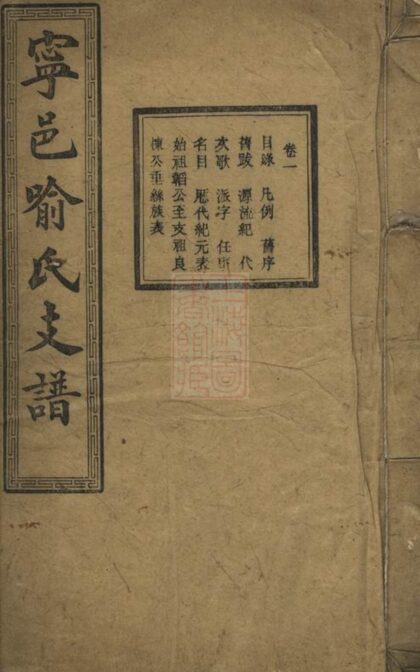 寧邑喻氏支譜
卷一
目錄 凡例 舊序
舊跋 源流紀 代
次歌 派字 任所
名目 歷代紀元表
始祖韜公至支祖良
棟公垂絲族表
上海圖書館藏